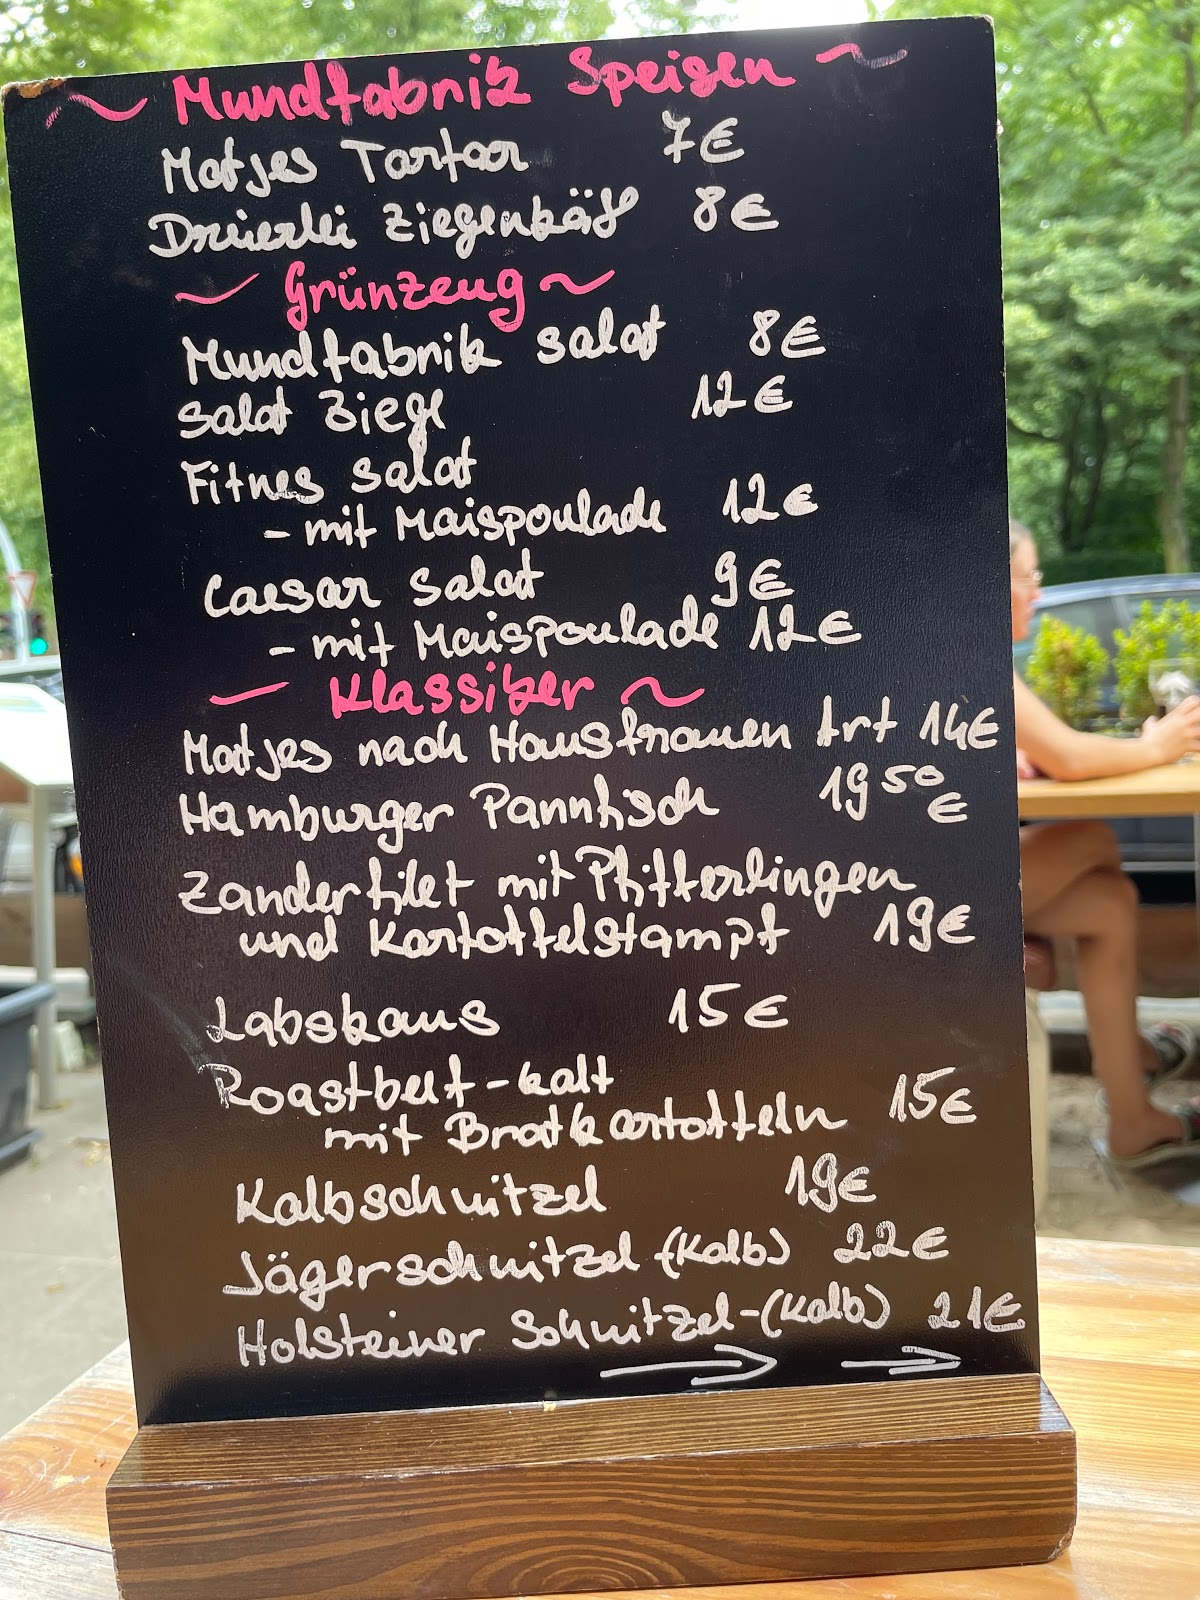 ~ Mundfabrik Speisen ~
Matjes Tartar 7€
Dreierlei Ziegenkäse 8€
~ Grünzeug ~
Mundfabrik Salat 8€
Salat Ziege 12€
Fitnes Salat
- mit Maispoulade 12€
Caesar Salat 9€
- mit Maispoulade 12€
~ Klassiker ~
Matjes nach Hausfrauen Art 14€
Hamburger Pannfisch 19 50 €
Zanderfilet mit Pfifferlingen
und Kartoffelstampf 19€
Labskaus 15€
Roastbeef-kalt
mit Bratkartoffeln 15€
Kalbschnitzel 19€
Jägerschnitzel (Kalb) 22€
Holsteiner Schnitzel-(Kalb) 21€
→ →